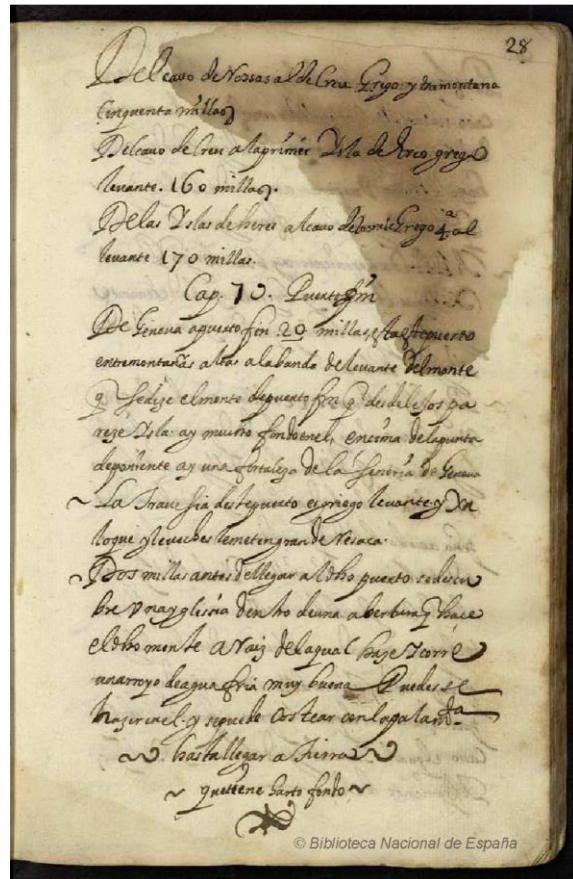 28
Del cauo de Rossas al de Creu Grego y tramontana
cinquenta millas
Del cauo de Creu a la primer Ysla de Areo grego
leuante. 160 millas.
De las Yslas de heres al cauo de Grego 4ª al
leuante 170 millas.
Cap. 70. Puerto fin
De Geneva a puerto fin 20 millas, esta este puerto
entre montañas altas a la banda de leuante del monte
q se dize el monte de puerto fin q desde lejos pa
reze Ysla ay mucho fondo en el, encima de la punta
de poniente ay una fortaleza de la Senoria de Geneva
La Travessia deste puerto es griego leuante y Xa
loque y leueche le meten gran de Resaca.
Dos millas antes de llegar al dho puerto se descu
bre vna yglessia dentro de una abertura q hace
el dho monte a raiz de la qual baje y corre
un arroyo de agua fria muy buena Puedesse
hazer en el y se puede costear con la galera
hasta llegar a tierra
que tiene harto fondo
© Biblioteca Nacional de España